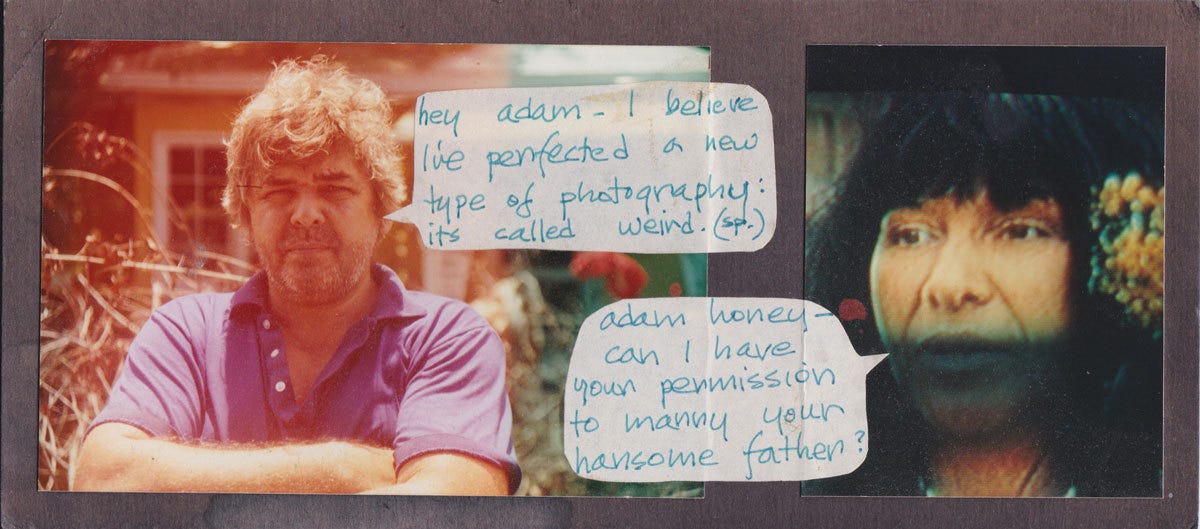 hey adam - I believe
I've perfected a new
type of photography:
its called weird. (sp.)
adam honey -
can I have
your permission
to marry your
hansome father?